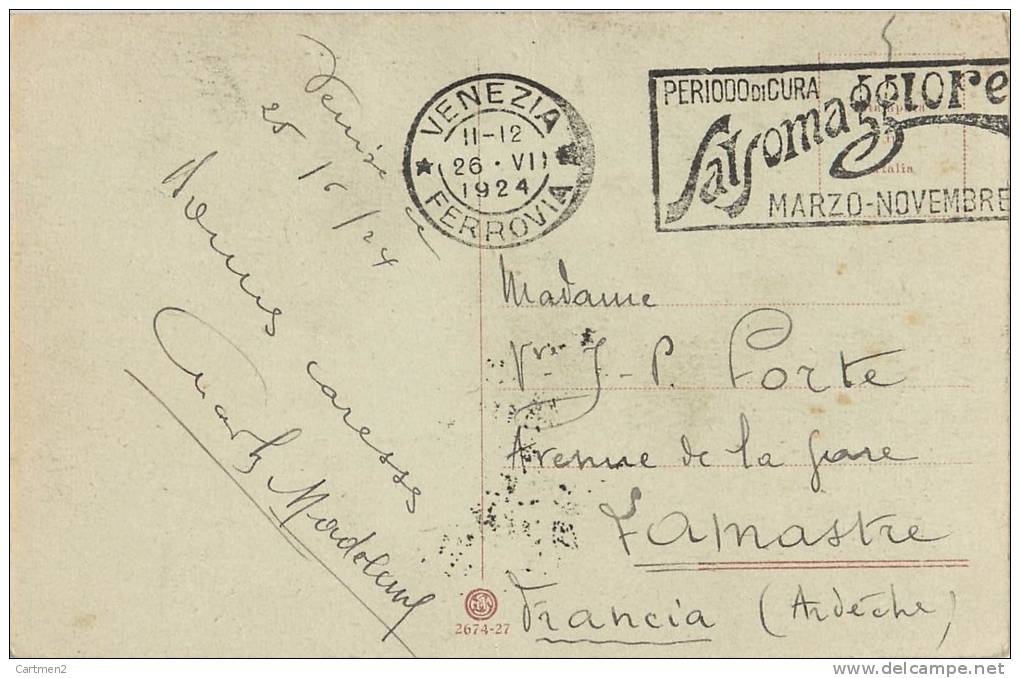 Venise
25/6/24
caresses
VENEZIA
11-12
26 · VI
1924
FERROVIA
PERIODO DI CURA
Salsomaggiore
MARZO-NOVEMBRE
Madame
Vve J-P. Porte
Avenue de la gare
Lamastre
Francia (Ardèche)
2674-27
Cartmen2
delcampe.net